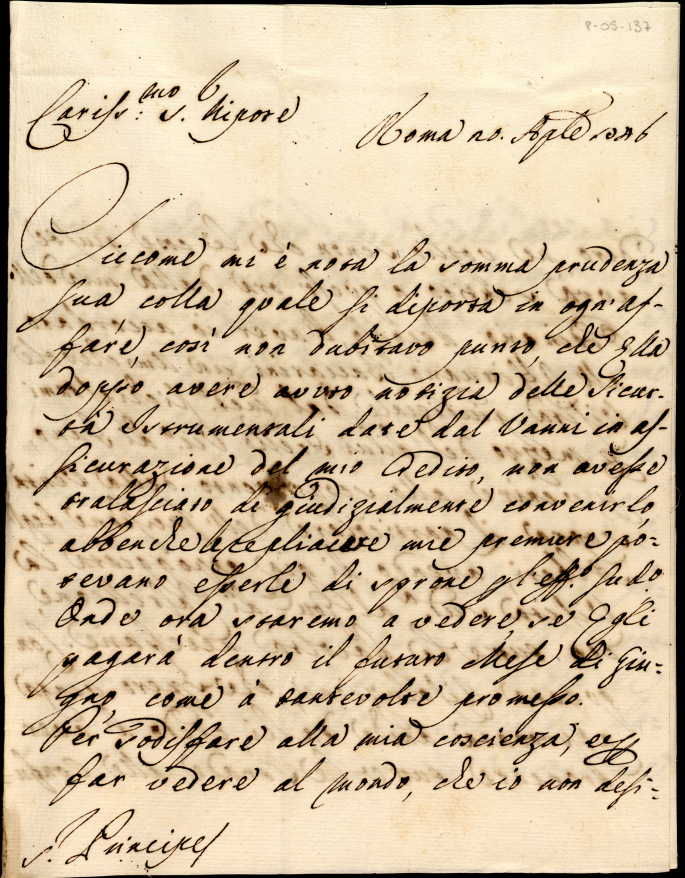 8-05-137
Cariss:mo S. Nipote
Roma 20. Aple 1746
Siccome mi è nota la somma prudenza
sua colla quale si diporta in ogn'af-
fare, così non dubitavo punto, che Ella
doppo avere avuto notizia delle Sicur-
tà Istrumentali date dal Vanni in as-
sicurazione del mio Credito, non avesse
tralasciato di giudizialmente convenirlo,
abbenche le replicate mie premure po-
tevano esserle di sprone
Onde ora staremo a vedere, se Egli
pagarà dentro il futuro Mese di Giu-
gno, come à tantevolte promesso.
Per sodisfare alla mia coscienza, e
far vedere al Mondo, che io non desi-
S.r Principe